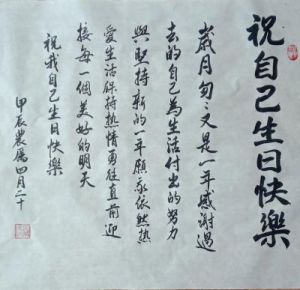 祝自己生日快樂
歲月匆匆又是一年感謝過
去的自己為生活付出的努力
與堅持新的一年願我依然熱
愛生活保持熱情勇往直前迎
接每一個美好的明天
祝我自己生日快樂
甲辰農曆四月二十